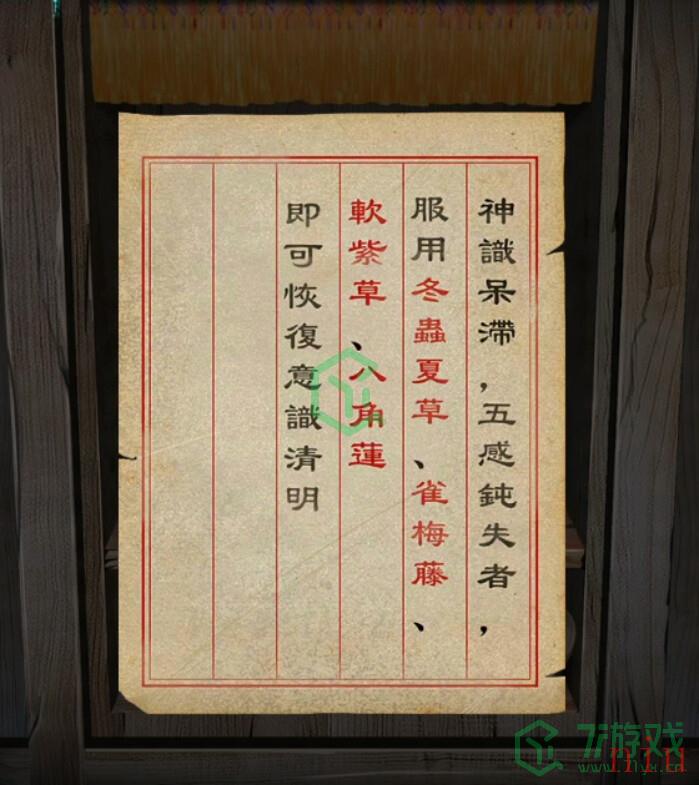 神識呆滯，五感鈍失者，
服用冬蟲夏草、雀梅藤、
軟紫草、八角蓮
即可恢復意識清明
7k游戏
www.7lyx.cn